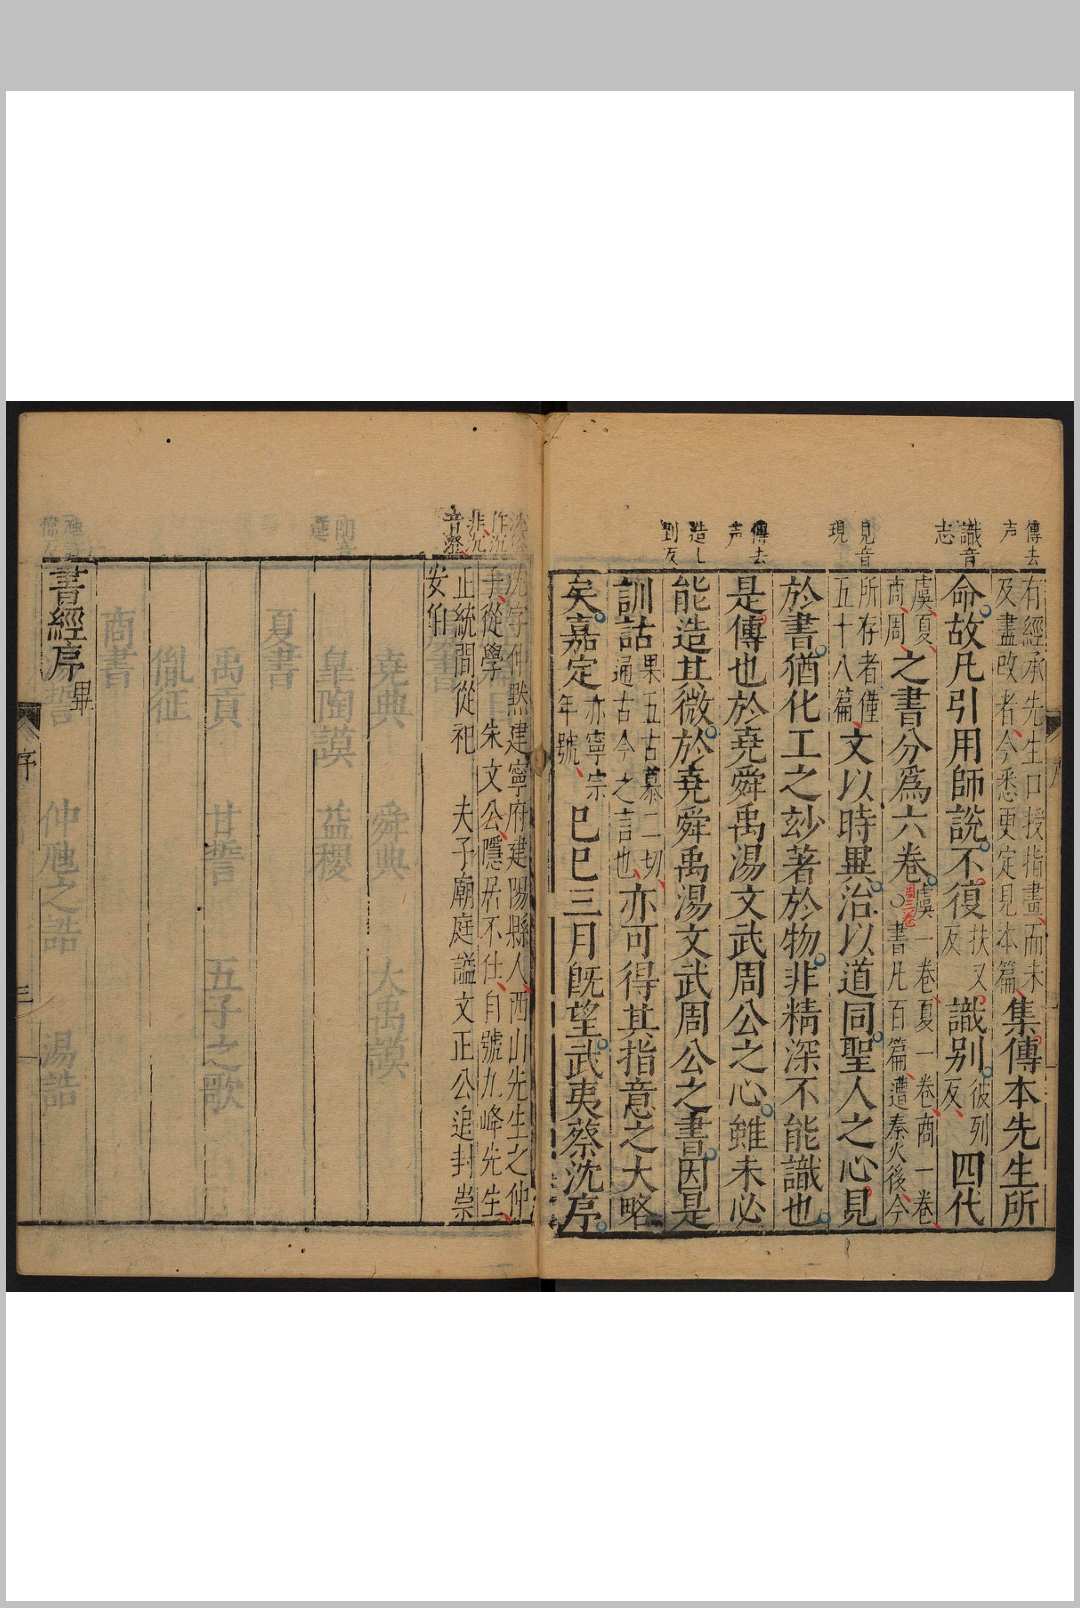 傳去
声
識音
志
見音
現
傳去
声
造七
到反
有經承先生口授指畫而未
及盡改者今悉更定見本篇
集傳本先生所
命故凡引用師說不復
扶又
反
識別
彼列
反
四代
虞夏
商周
之書分爲六卷
虞一卷夏一卷商一卷
周三卷
書凡百篇遭秦火後今
所存者僅
五十八篇
文以時異治以道同聖人之心見
於書猶化工之玅著於物非精深不能識也
是傳也於堯舜禹湯文武周公之心雖未必
能造其微於堯舜禹湯文武周公之書因是
訓詁
果五古慕二切
通古今之言也
亦可得其指意之大略
矣嘉定
亦寧宗
年號
巳巳三月旣望武夷蔡沈序
沈俗
作沉
非沉
音澄
沈字仲默建寧府建陽縣人西山先生之仲
子從學
朱文公隱居不仕自號九峰先生
正統間從祀
夫子廟庭謚文正公追封崇
安伯
書經序
畢
序
三